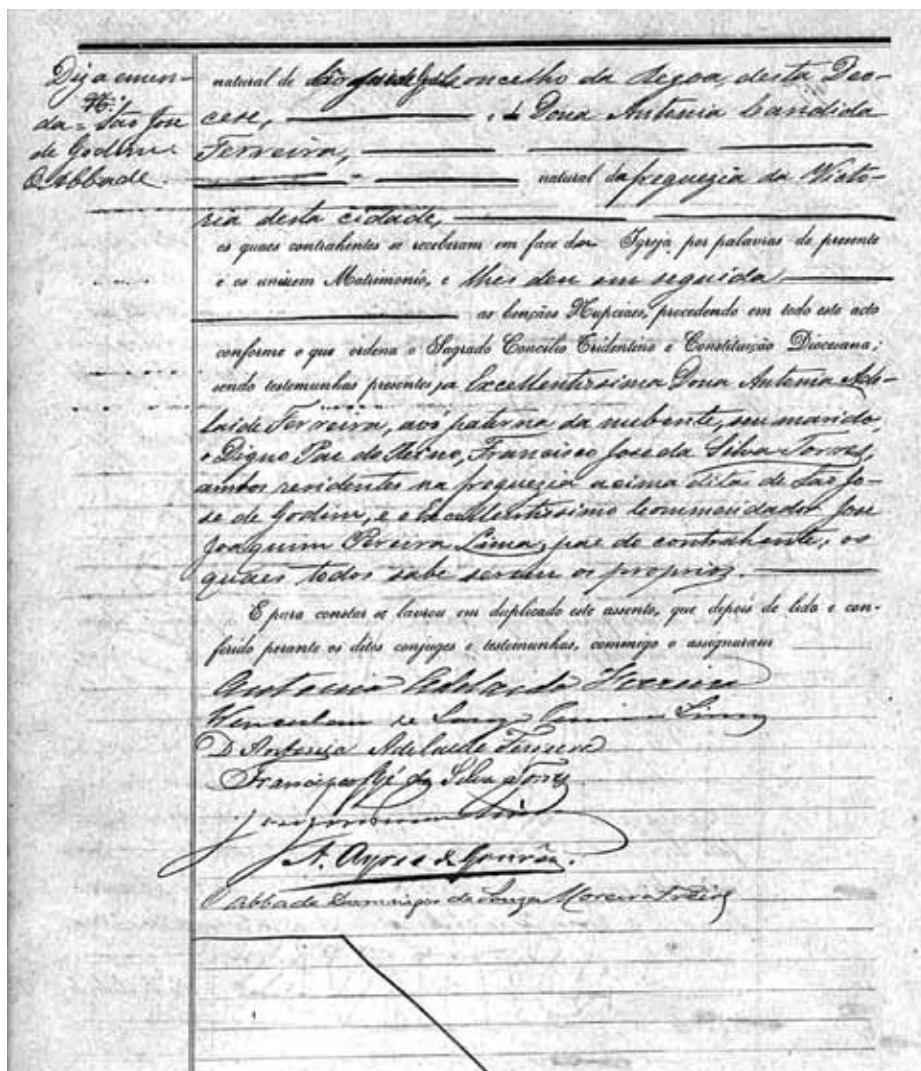 Diz a emen-
da = São Jose
de Godim =
O Abbade
natural de São José de Godim concelho da Regoa, desta Dio-
cese, e de Dona Antonia Candida
Ferreira,
natural da freguezia da Victo-
ria desta cidade,
os quaes contrahentes se receberam em face da Igreja por palavras de presente
e os uni em Matrimonio, e lhes deu em seguida
as bençãos Nupciaes, procedendo em todo este acto
conforme o que ordena o Sagrado Concilio Tridentino e Constituição Diocesana;
sendo testemunhas presentes, a Excellentissima Dona Antonia Ade-
laide Ferreira, avó paterna da nubente, seu marido,
o Digno Par do Reino, Francisco José da Silva Torres,
ambos residentes na freguezia acima dita de São Jo-
se de Godim, e o Excellentissimo Commendador José
Joaquim Pereira Lima, pae do contrahente, os
quaes todos sabe serem os proprios.
E para constar se lavrou em duplicado este assento, que depois de lido e con-
ferido perante os ditos conjuges e testemunhas, commigo o assignaram
Antonia Adelaide Ferreira
Wenceslau de Souza Pereira Lima
D Antonia Adelaide Ferreira
Francisco José da Silva Torres
Lima
A. Ayres de Gouvêa.
O Abbade Domingos de Souza Moreira Freire